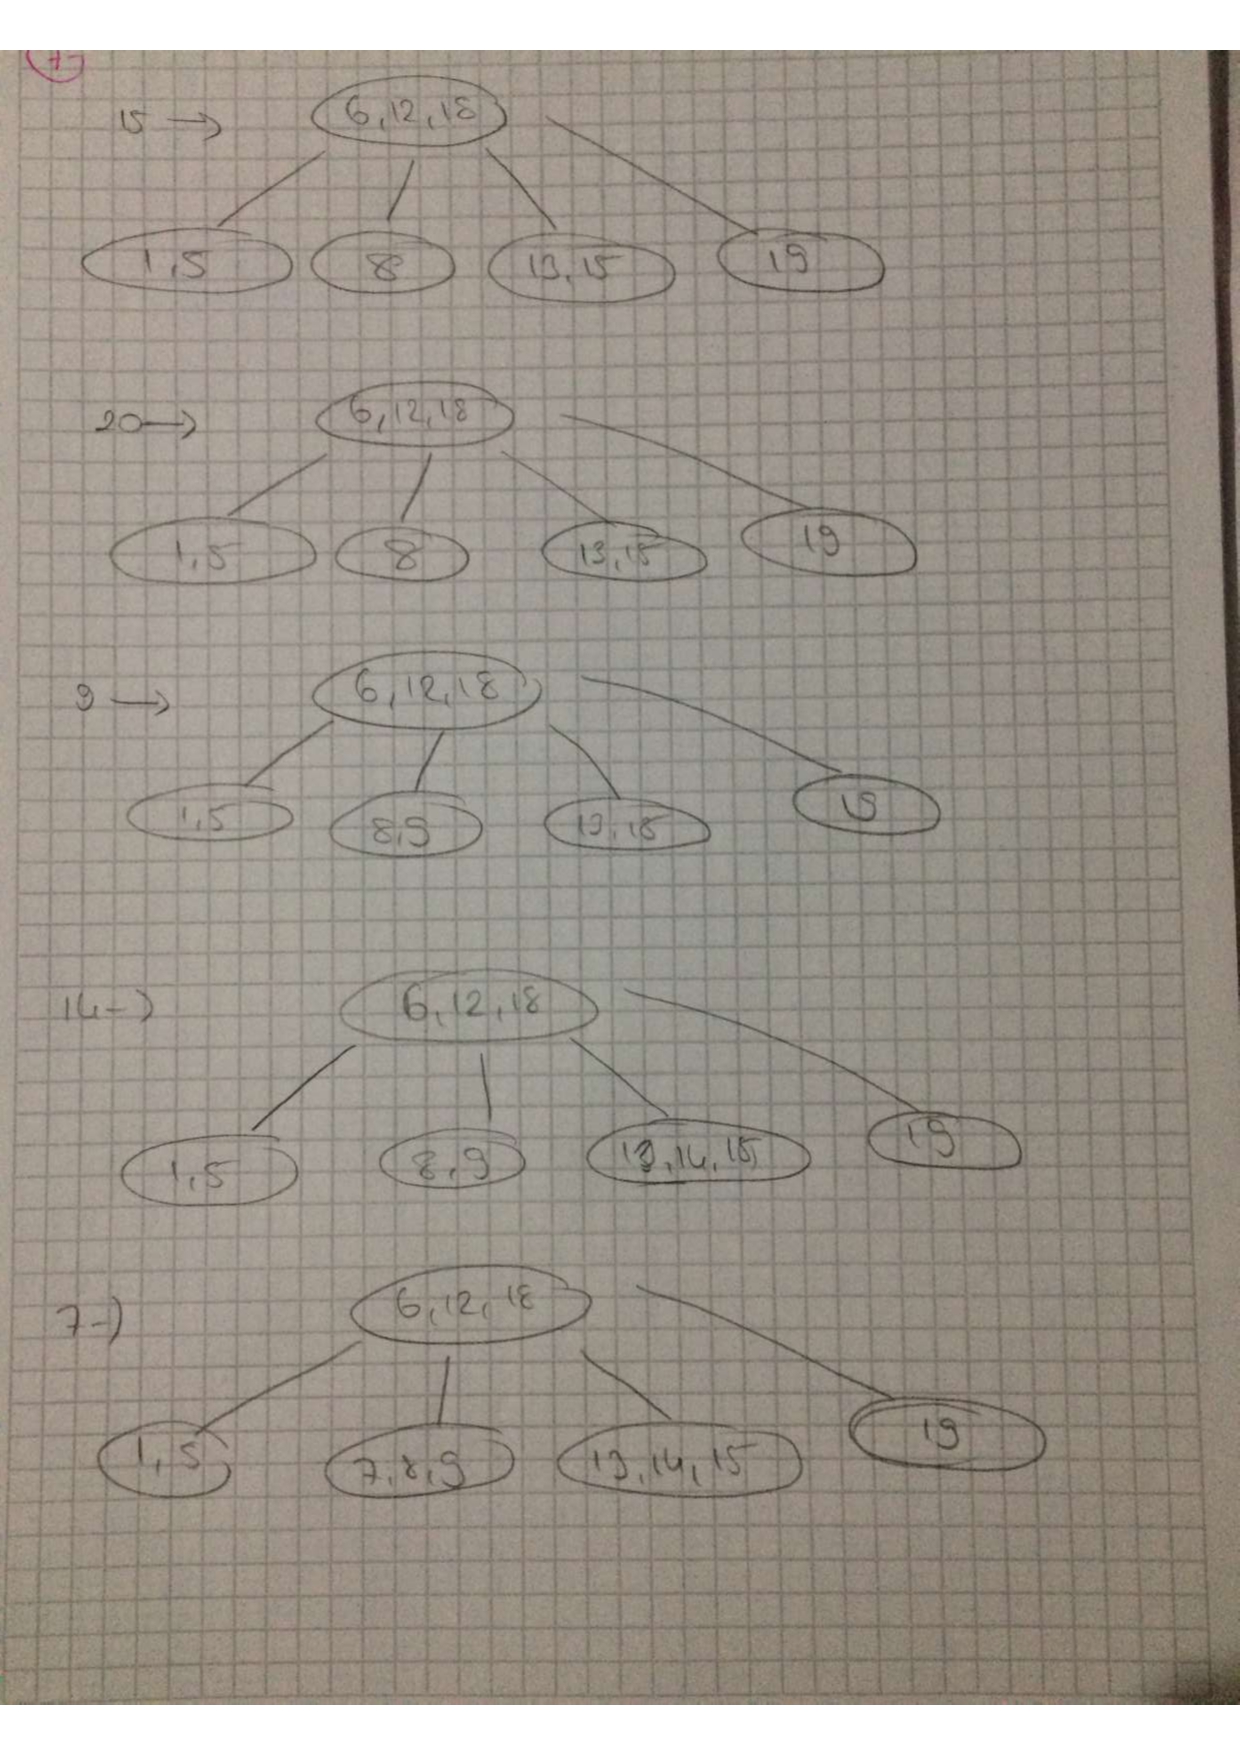 7-
15 → 6,12,18
1,5 8 13,15 19
20 → 6,12,18
1,5 8 13,15 19
9 → 6,12,18
1,5 8,9 13,15 19
14-) 6,12,18
1,5 8,9 13,14,15 19
7-) 6,12,18
1,5 7,8,9 13,14,15 19